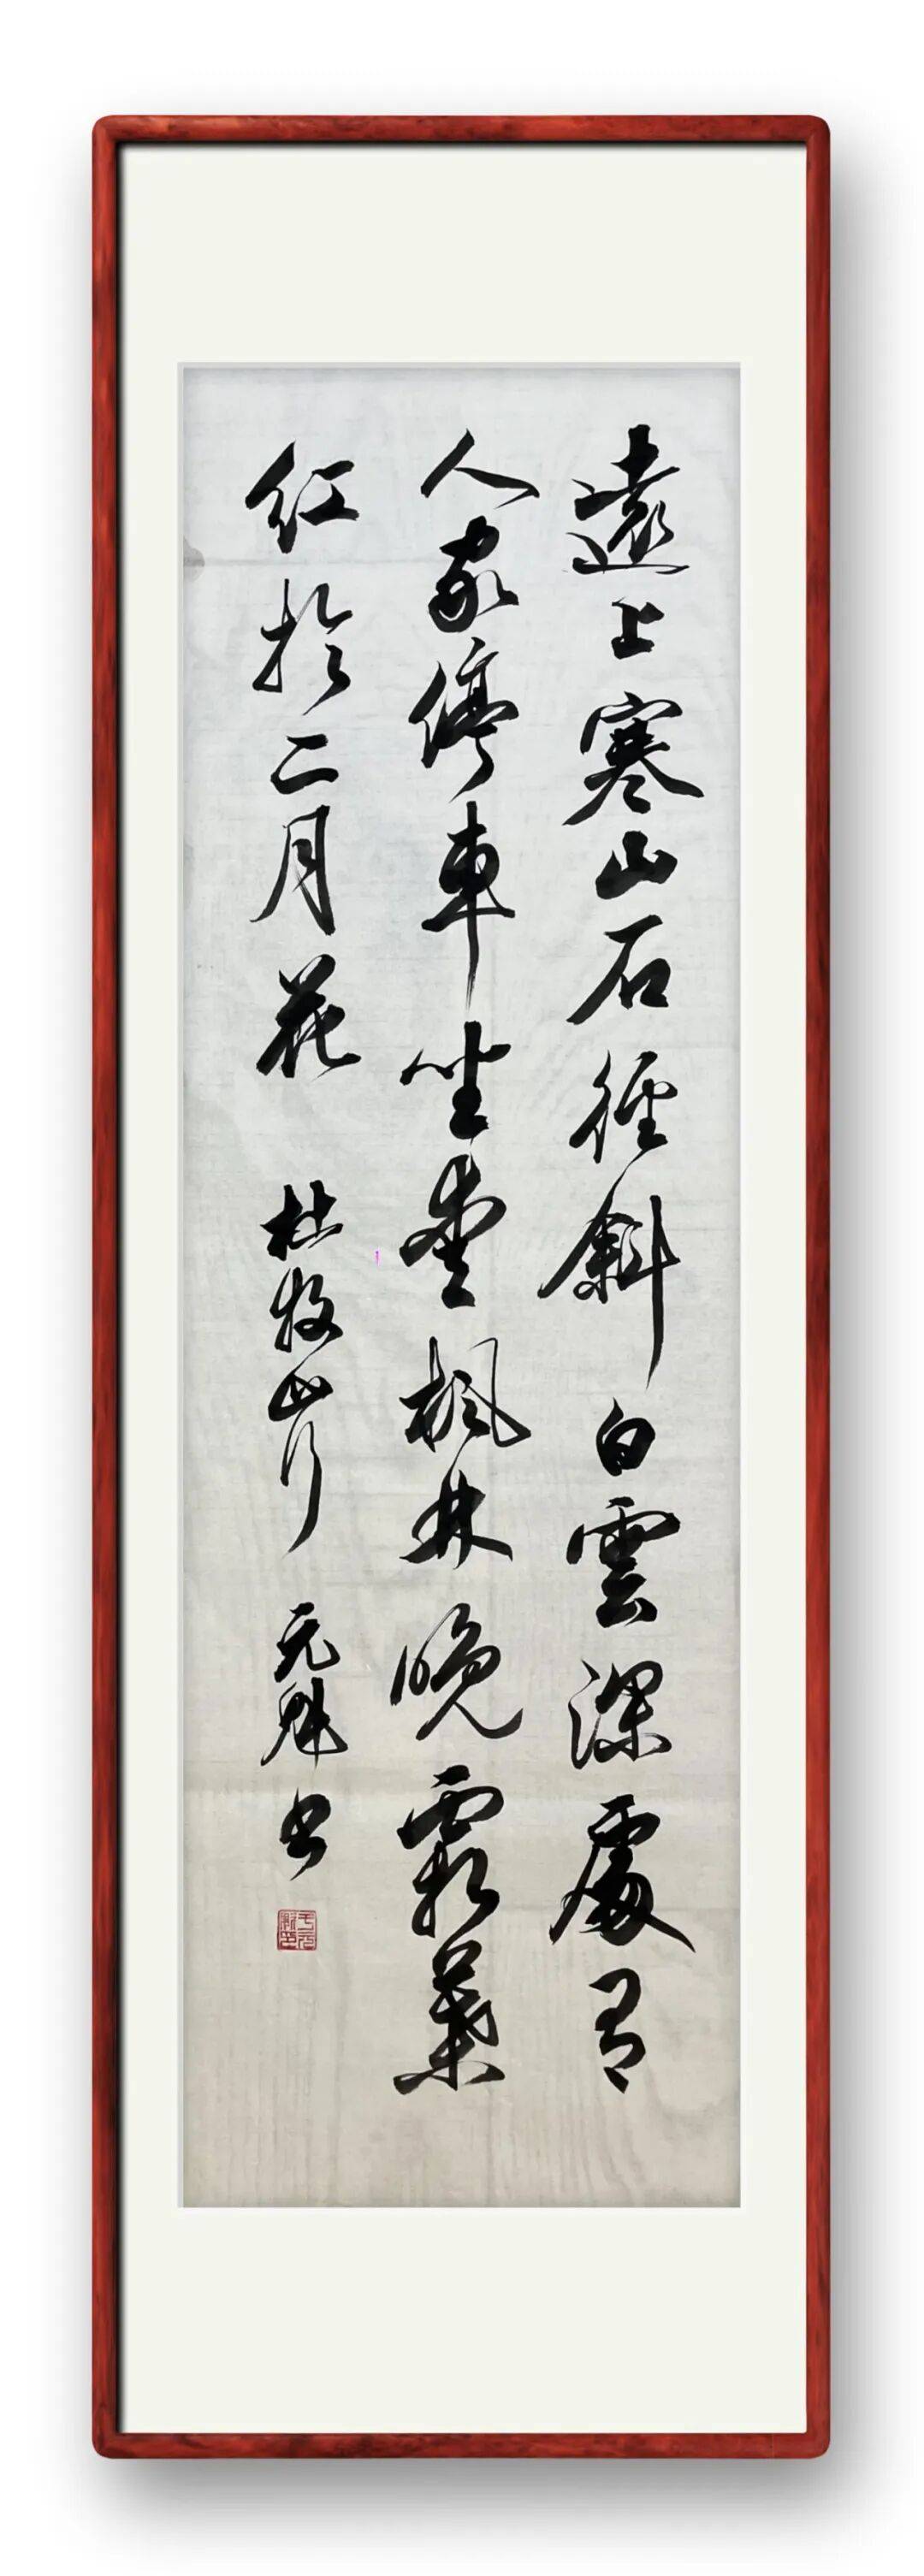 遠上寒山石徑斜白雲深處有
人家停車坐愛楓林晚霜葉
紅於二月花 杜牧山行 元魁書